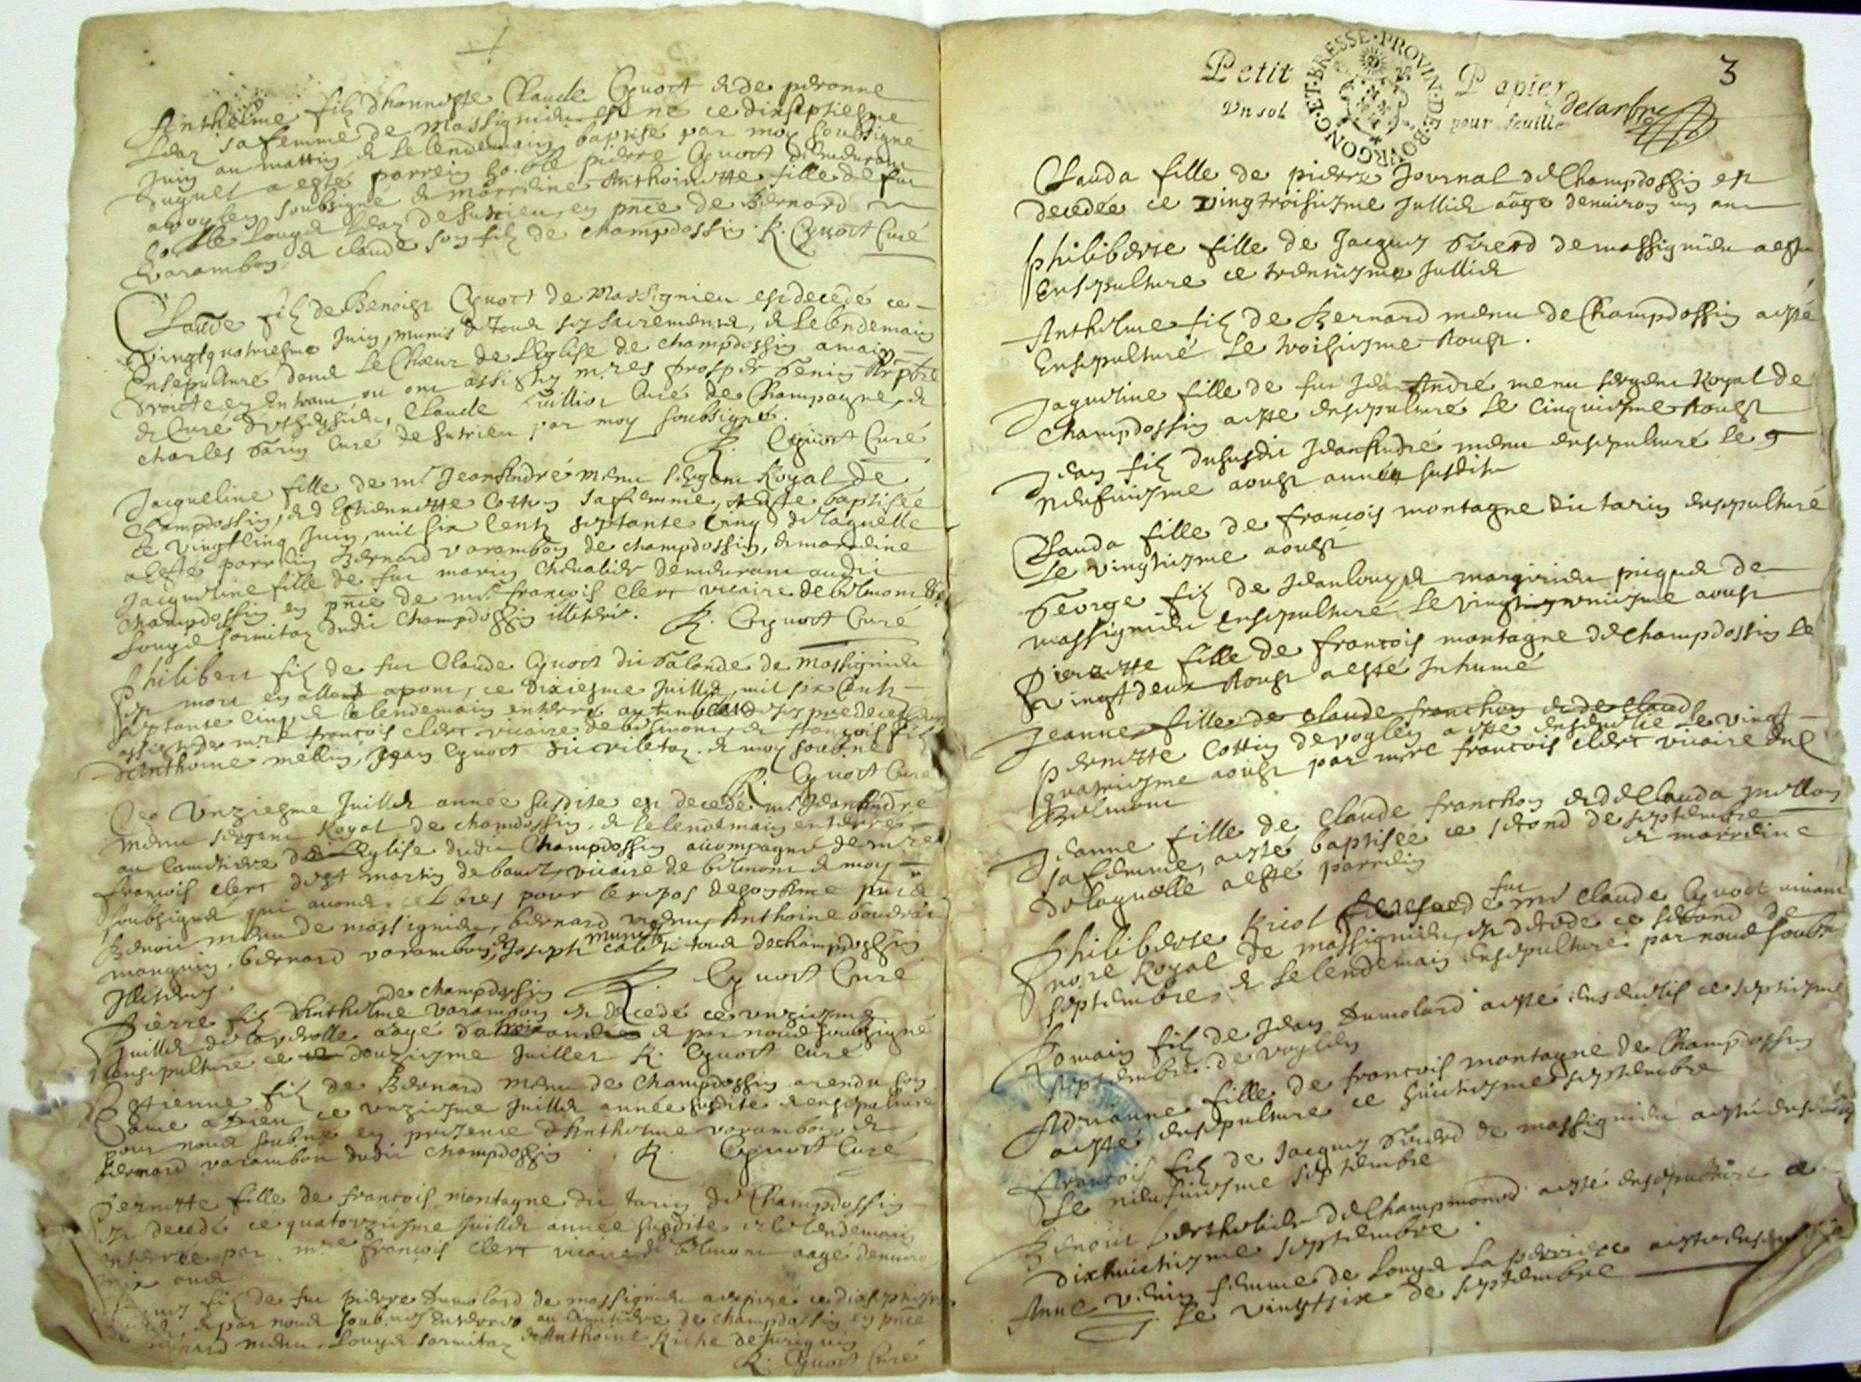 Anthelme filz dhonneste Claude Cyvoct et de peronne
sa femme de Massignieu est né ce dixseptiesme
Juin au mattin et le lendemain baptisé par moy soubsigné
duquel a esté parrein pierre Cyvoct demeurant
a voglen soubsigné et marreine Anthoinette fille de feu
Louys de Sutrieu, en pñce de Bernard
Varambon et claude son filz de champdossin. R. Cyvoct Curé
Claude filz de Benoist Cyvoct de Massignieu est decedé ce
Vingtquatriesme Juin, munis de tous ses sacrements, et le lendemain
Ensepulturé dans le Chœur de l'Eglise de champdossin a main
droite en entrant, ou ont assistez m.res prosper Genin
et Curé, Claude Curé de Champagne, et
charles Curé de Sutrieu par moy soubsigné.
R. Cyvoct Curé
Jacqueline fille de m.r Jean André menu sergent Royal de
Champdossin, et d'Estiennette Cottin sa femme, a esté baptisée
ce vingtcinq Juin, mil six cents septante cinq de laquelle
a esté parrein Bernard varambon de champdossin, et marreine
Jacqueline fille de feu marin Chevalier demeurant audit
champdossin en pñce de m.re françois Clerc vicaire de belmont et
Louys sornitoz dudit Champdossin illiterés. R. Cyvoct Curé
Philibert filz de feu Claude Cyvoct dit Galande de Massignieu
est mort en allant a pont, ce dixiesme Juillet, mil six Cents
septante cinq, et le lendemain enterré au de ses predecesseurs
assisté de m.re françois clerc vicaire de belmont, et
d'Anthoine mellin, Jean Cyvoct et moy soubné
R. Cyvoct Curé
Ce Unziesme Juillet année susdite est decedé m.r Jean André
menu sergent Royal de champdossin, et le lendemain enterré
au Cimetiere de l'Eglise dudit Champdossin accompagné de m.re
françois clerc vicaire de belmont et moy
soubsigné qui avons celebrés pour le repos de son Ame pñce de
Benoit menu de massignieu, bernard, Anthoine
bernard varambon, Joseph tous de champdossin
Illiterés. R. Cyvoct Curé
de champdossin
Pierre filz d'Anthelme varambon est decedé ce unziesme
Juillet aagé et par nous soubsigné
ensepulture ce douziesme Juillet R. Cyvoct Curé
Estienne filz de Bernard menu de champdossin a rendu son
ame a Dieu ce unziesme Juillet année susdite et ensepulturé
par nous soubné en presence d'Anthelme varambon et
Bernard varambon dudit champdossin. R. Cyvoct Curé
Pernette fille de françois montagne dit tarin de Champdossin
est decedé ce quatorziesme Juillet année susdite et le lendemain
enterrée par m.re françois Clerc vicaire de belmont aage denviron
ans
filz de feu pierre Dumolard de massignieu
et par nous soubsigné enterré au cimitiere de champdossin en pñce
menu, Louys sornitoz et Anthoine Riche
R. Cyvoct Curé
3
Petit Papier
Un sol pour feuille
BOVRGONG·ET·BRESSE·PROVIN·DE·
delarbre
Clauda fille de pierre Journal de Champdossin est
decedée ce vingtroisiesme Juillet aage denviron un an
philiberte fille de Jacques Girerd de massignieu a esté
Ensepulture ce trentiesme Juillet
Anthelme filz de Bernard menu de Champdossin a esté
Ensepulturé le troisiesme Aoust.
Jaqueline fille de feu Jean André menu sergent Royal de
Champdossin a esté ensepulturé le cinquiesme Aoust
Jean filz dususdit Jean André menu ensepulturé le 9
neufuiesme aoust année susdite
Clauda fille de françois montagne dit tarin ensepulturé
le vingtiesme aoust
George filz de Jean louys picquet de
massignieu ensepulturé le aoust
Pierrette fille de françois montagne de Champdossin le
vingt deux Aoust a esté Inhumé
Jeanne fille de claude franchon et de claud
pernette Cottin de voglen a esté ensevelie le vingt
quatriesme aoust par m.re francois clerc vicaire de
Belmont
Jeanne fille de Claude franchon et de Clauda
sa femme, a esté baptisée ce second de septembre
de laquelle a esté parrein et marreine
Philiberte Ricol feu m.r Claude Cyvoct vivant
no.re Royal de massignieu, est decede ce second de
septembre, et le lendemain ensepulturé par nous soubné
Romain filz de Jean Dumolard a esté ensevelis ce septiesme
septembre de voglen
Adrianne fille de francois montagne de Champdossin
a esté ensepulture ce huictiesme septembre
François filz de Jacques Girerd de massignieu a esté ensevely
le neufuiesme septembre
Benoit Berthelier de Champmond a esté ensepulture ce
dixhuictiesme septembre.
Anne venin femme de Louys Laperriere a esté ensevelie
le vingtsix de septembre